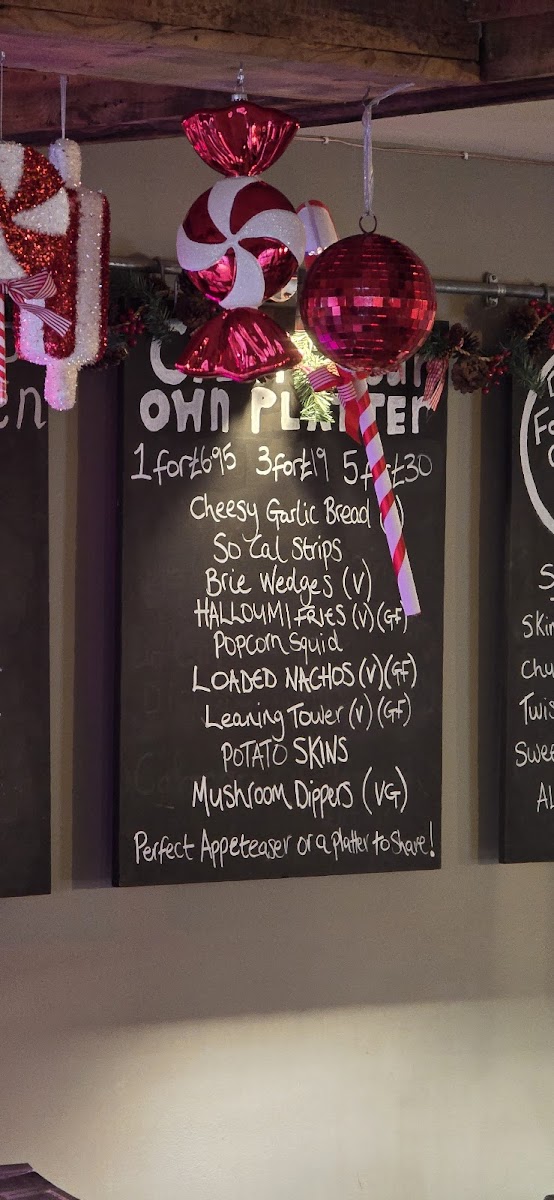 OWN PLATTER
1 for £6.95 3 for £19 5 for £30
Cheesy Garlic Bread
So Cal Strips
Brie Wedges (V)
HALLOUMI FRIES (V) (GF)
Popcorn Squid
LOADED NACHOS (V) (GF)
Leaning Tower (V) (GF)
POTATO SKINS
Mushroom Dippers (VG)
Perfect Appeteaser or a platter to Share!